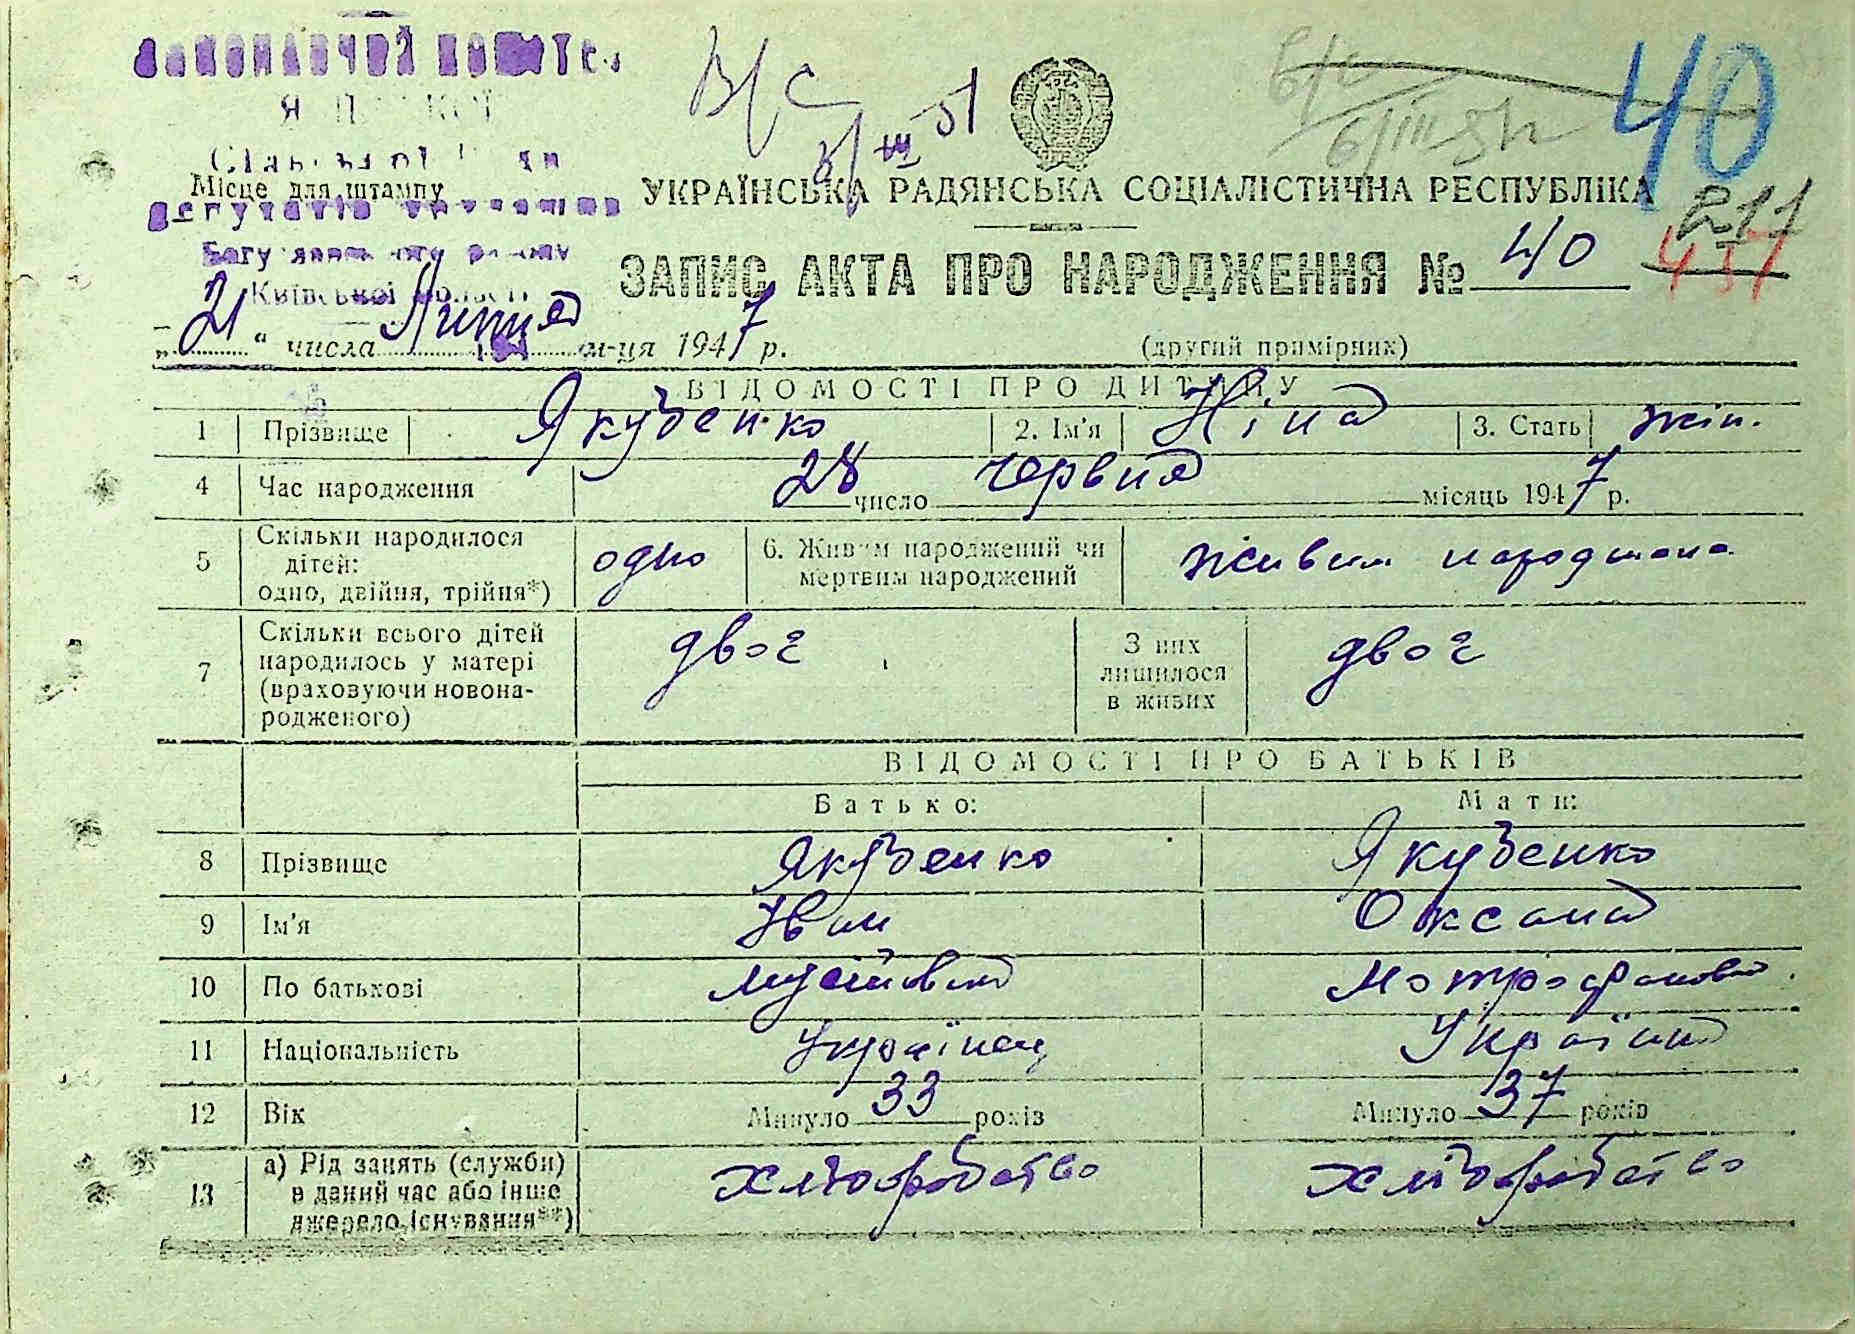 виконавчий комітет
Місце для штампу
депутатів трудящих
Київської області
В/С
6/III 51
в/с
6/III 51
40
УКРАЇНСЬКА РАДЯНСЬКА СОЦІАЛІСТИЧНА РЕСПУБЛІКА
211
ЗАПИС АКТА ПРО НАРОДЖЕННЯ № 40
457
„21“ числа Липня м-ця 1947 р.
(другий примірник)
ВІДОМОСТІ ПРО ДИТИНУ
1 Прізвище Якубенко 2. Ім'я Ніна 3. Стать жін.
4 Час народження 28 число червня місяць 1947 р.
5 Скільки народилося дітей: одно, двійня, трійня*) одно 6. Живим народжений чи мертвим народжений живим народжена
7 Скільки всього дітей народилось у матері (враховуючи новонародженого) двоє З них лишилося в живих двоє
ВІДОМОСТІ ПРО БАТЬКІВ
Батько: Мати:
8 Прізвище Якубенко Якубенко
9 Ім'я Іван Оксана
10 По батькові
11 Національність Українец Українка
12 Вік Минуло 33 років Минуло 37 років
13 а) Рід занять (служби) в даний час або інше джерело існування**) хліборобство хліборобство